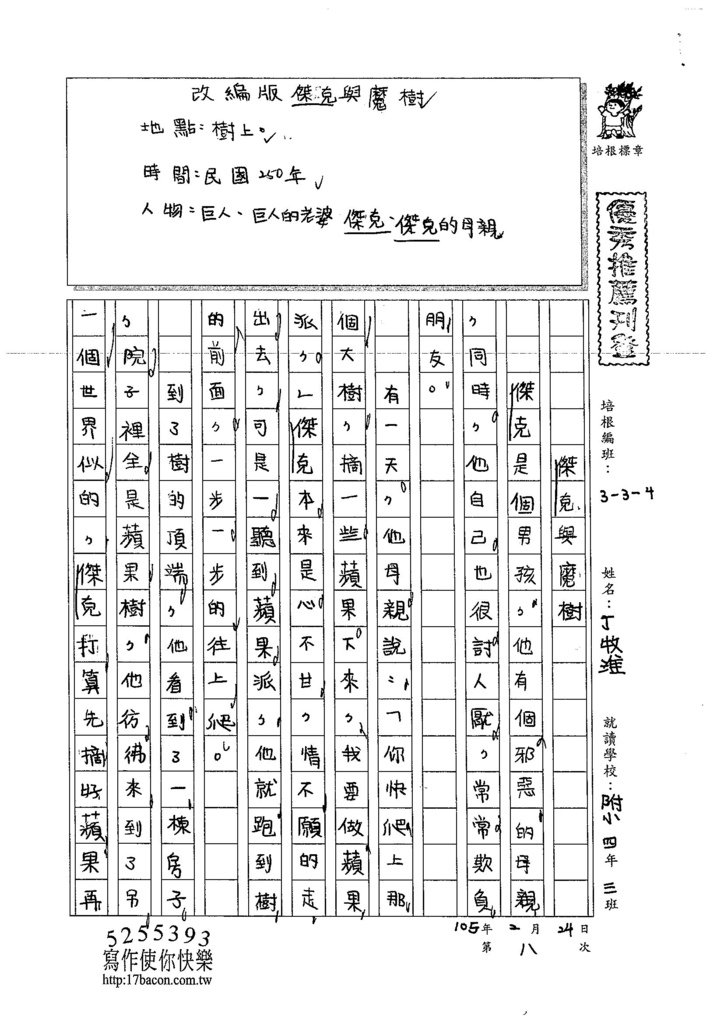 改編版傑克與魔樹
地點：樹上。
時間：民國250年
人物：巨人、巨人的老婆 傑克、傑克的母親
培根標章
優秀推薦刊登
培根編班：3-3-4
姓名：丁牧淮
就讀學校：附小四年三班
105年2月24日
第八次
傑克與魔樹
傑克是個男孩，他有個邪惡的母親
，同時，他自己也很討人厭，常常欺負
朋友。
有一天，他母親說：「你快爬上那
個大樹，摘一些蘋果下來，我要做蘋果
派，」傑克本來是心不甘，情不願的走
出去，可是一聽到蘋果派，他就跑到樹
的前面，一步一步的往上爬。
到了樹的頂端，他看到了一棟房子
，院子裡全是蘋果樹，他彷彿來到了另
一個世界似的，傑克打算先摘好蘋果再
5255393
寫作使你快樂
http:17bacon.com.tw